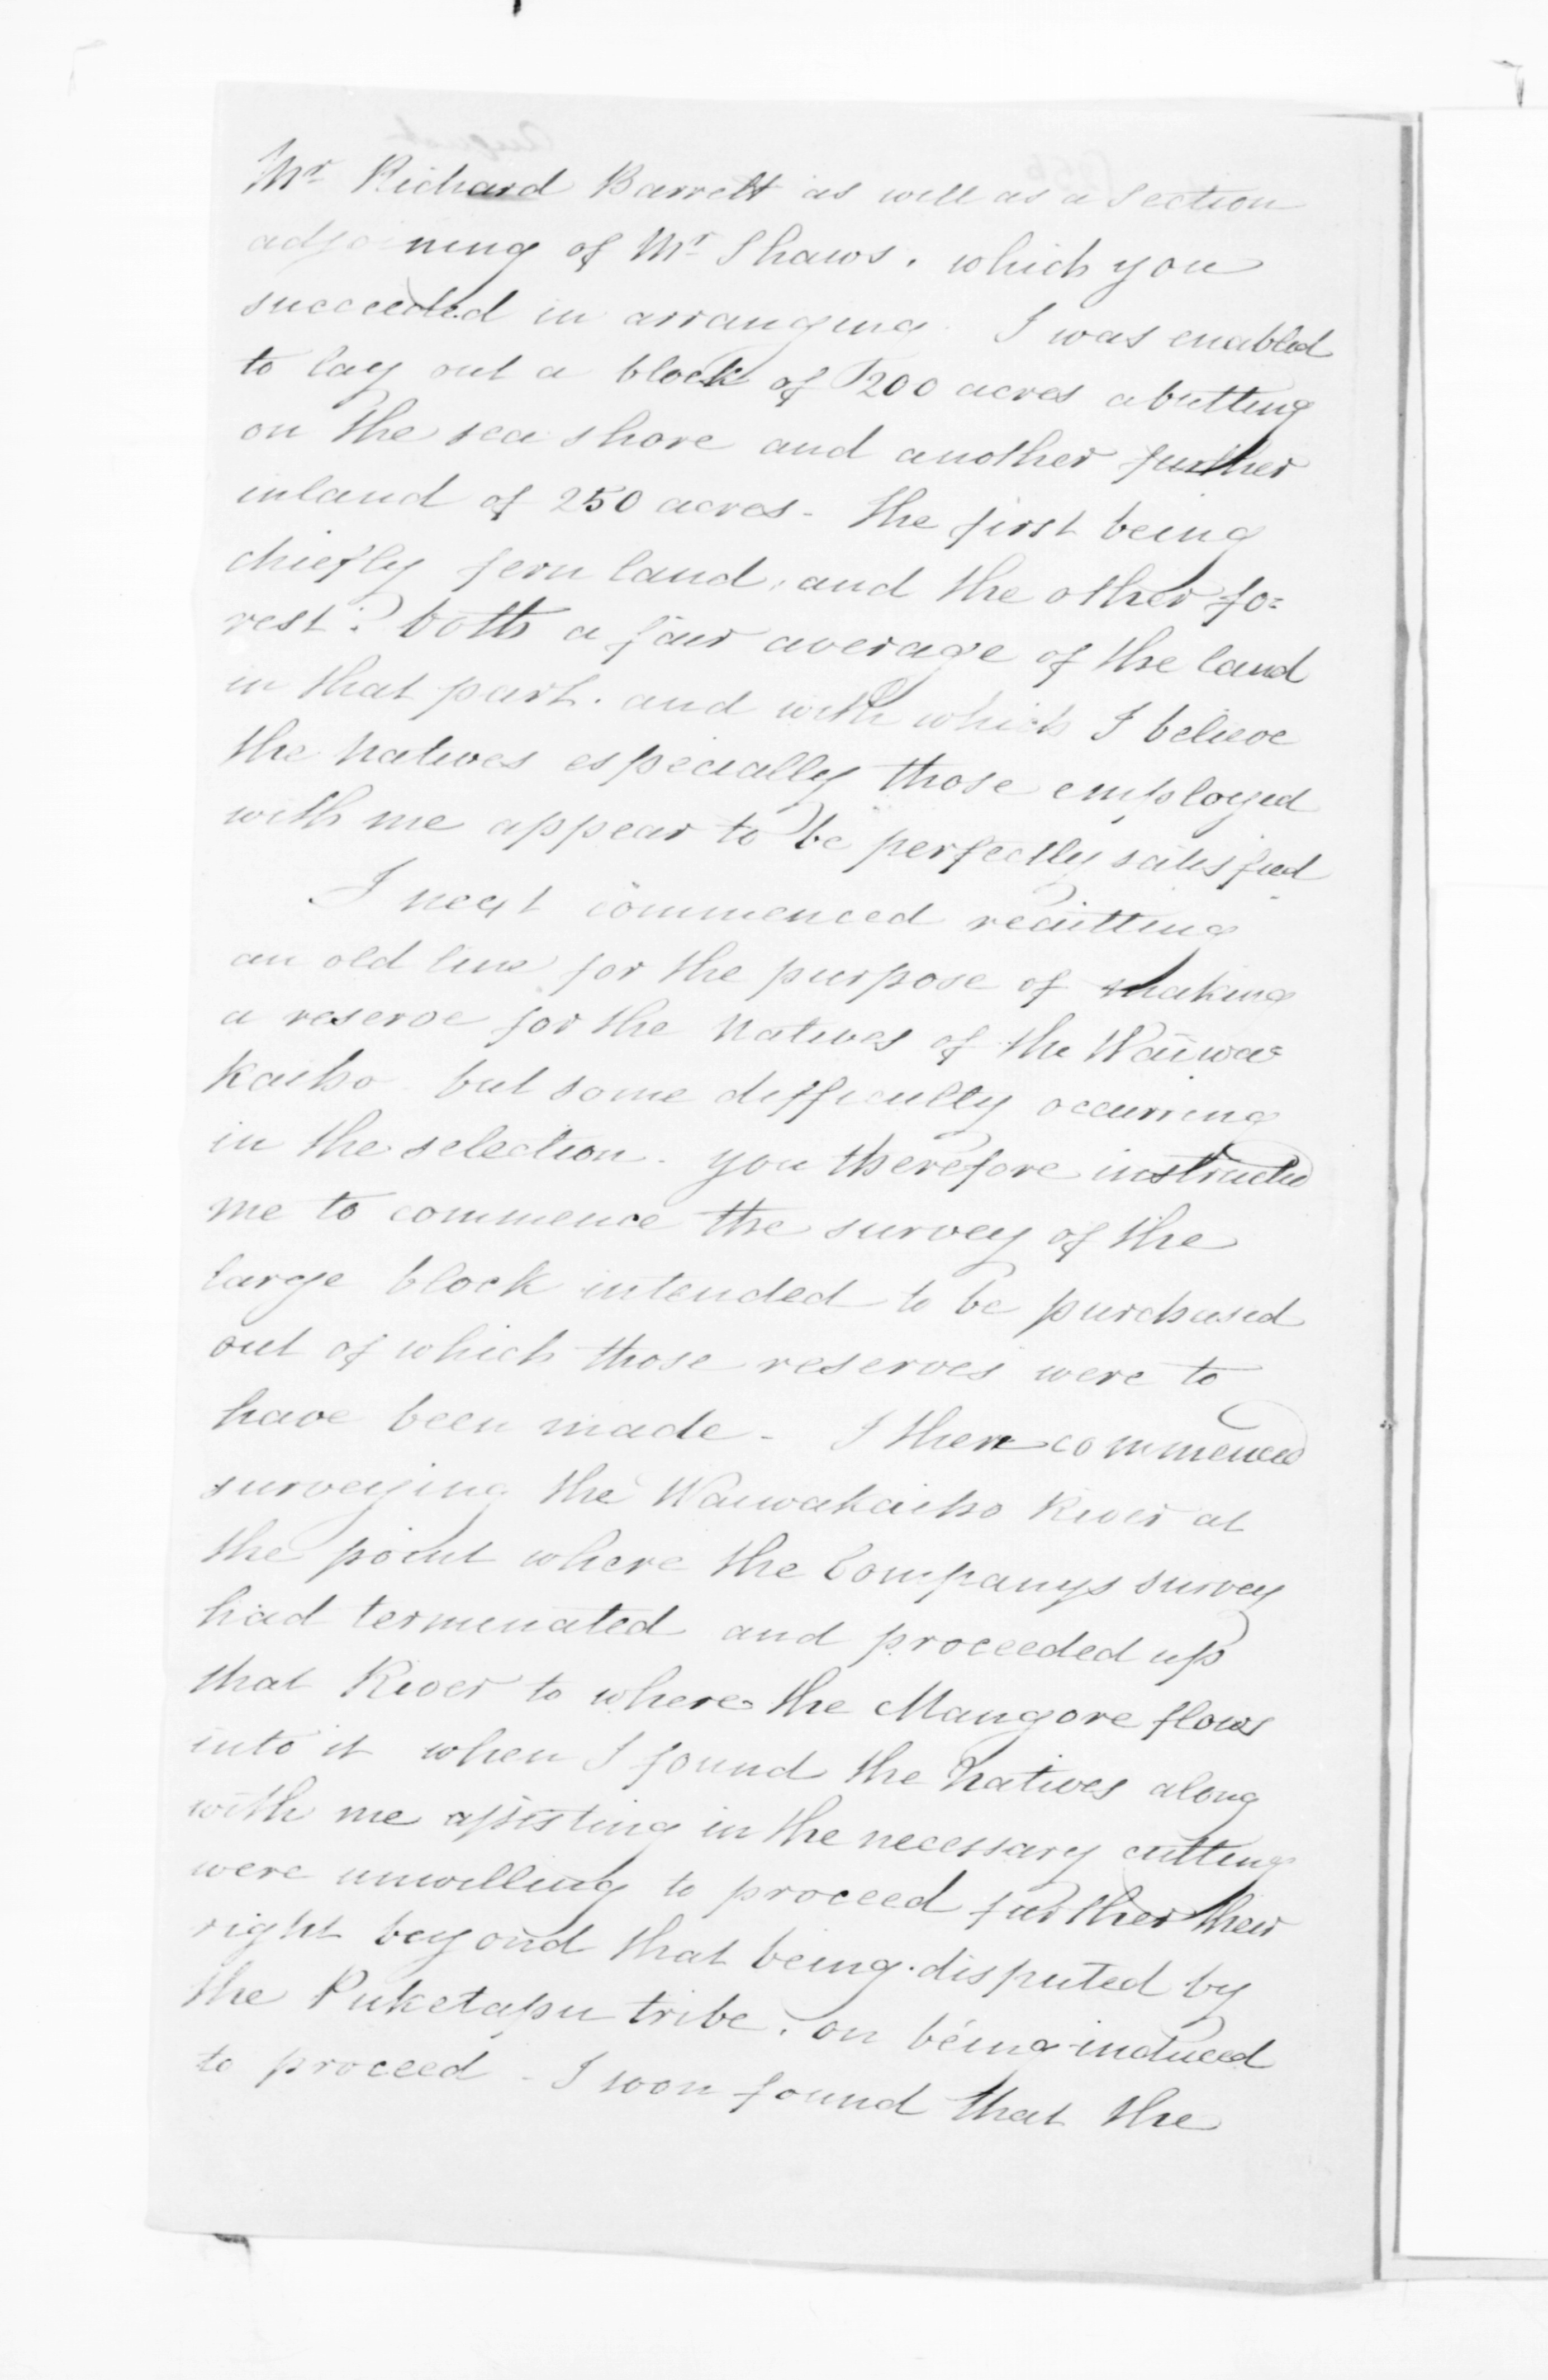 Mr Richard Barrett as well as a section
adjoining of Mr Shaws. which you
succeeded in arranging. I was enabled
to lay out a block of 200 acres abutting
on the sea shore and another further
inland of 250 acres - the first being
chiefly fern land, and the other fo=
rest: both a fair average of the land
in that part. and with which I believe
the natives especially those employed
with me appear to be perfectly satisfied
I next commenced recutting
an old line for the purpose of making
a reserve for the natives of the Waiwa=
kaiho but some difficulty occurring
in the selection - you therefore instructed
me to commence the survey of the
large block intended to be purchased
out of which those reserves were to
have been made - I then commenced
surveying the Waiwakaiho River at
the point where the Companys survey
had terminated and proceeded up
that River to where the Mangore flows
into it when I found the natives along
with me assisting in the necessary cutting
were unwilling to proceed further their
right beyond that being disputed by
the Puketapu tribe. on being induced
to proceed - I soon found that the